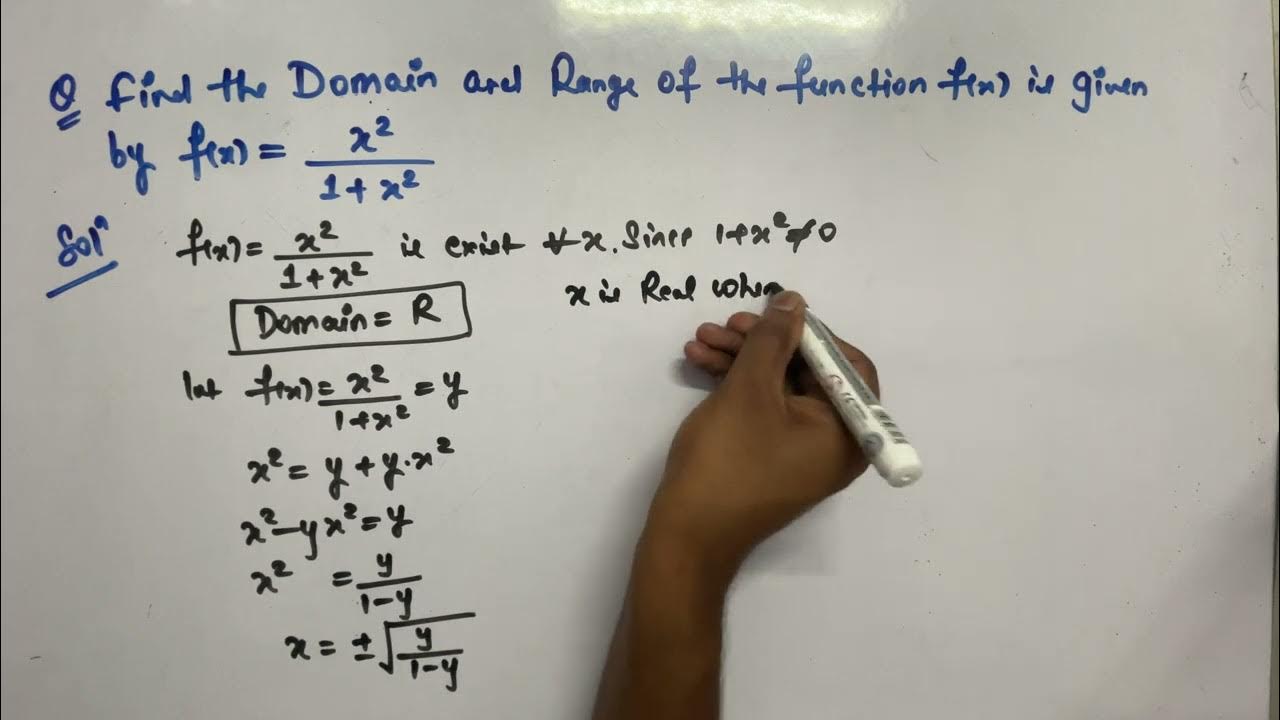 Q Find the Domain and Range of the function f(x) is given
by f(x) = x²/(1+x²)
Solⁿ f(x) = x²/(1+x²) is exist ∀ x. Since 1+x² ≠ 0
Domain = R
x is Real when
let f(x) = x²/(1+x²) = y
x² = y + y·x²
x² - yx² = y
x² = y/(1-y)
x = ±√(y/(1-y))